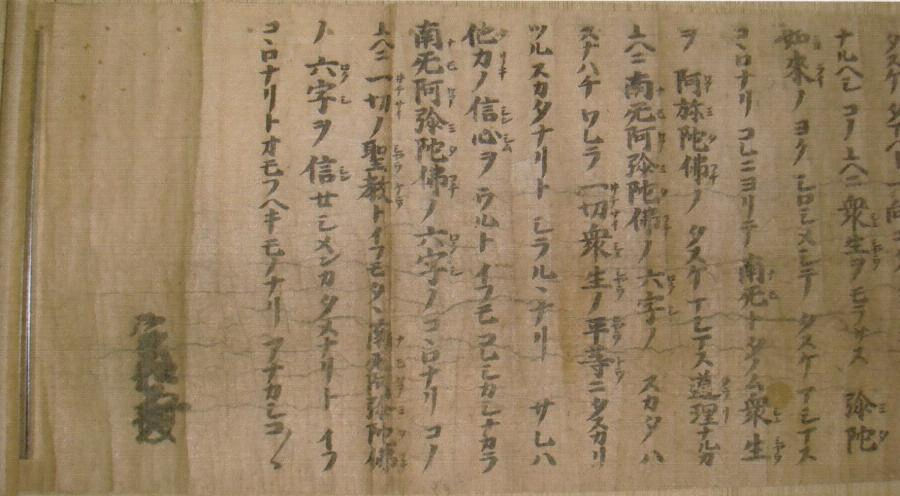 タスケタマヘト 一向コ
ナルヘシ コノユヘニ 衆生ヲモラサス 弥陀
如來ノ ヨクシロシメシテ タスケマシマス
コヽロナリ コレニヨリテ 南无トタノム 衆生
ヲ 阿弥陀佛ノ タスケマシマス道理ナルカ
ユヘニ 南无阿弥陀佛ノ六字ノ スカタハ
スナハチ ワレラ 一切衆生ノ平等ニタスカリ
ツルスカタナリト シラルヽナリ サレハ
他力ノ信心ヲ ウルト イフモ コレシカシナカラ
南无阿弥陀佛ノ六字ノ コヽロナリ コノ
ユヘニ 一切ノ聖教トイフモタヽ南无阿弥陀佛
ノ 六字ヲ 信セシメンカタメナリト イフ
コヽロナリトオモフヘキモノナリ アナカシコ〱